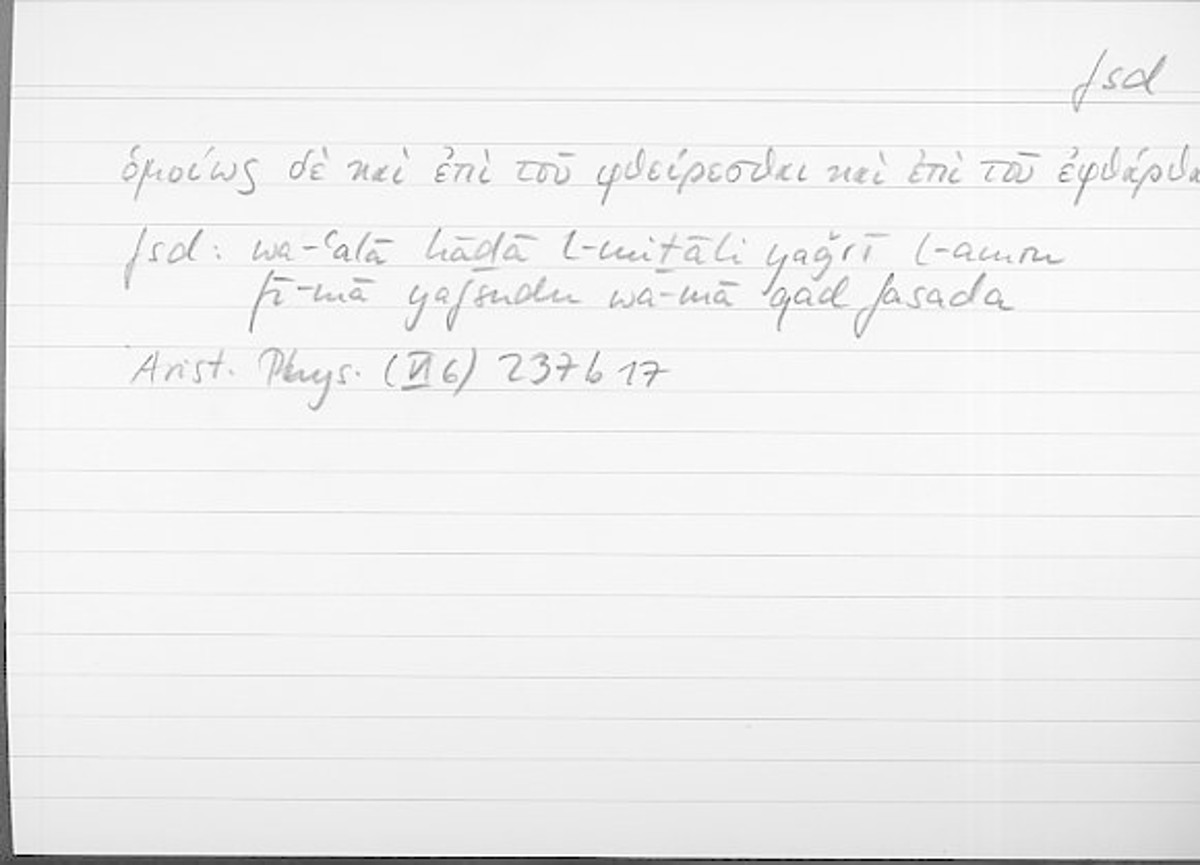 fsd
ὁμοίως δὲ καὶ ἐπὶ τοῦ φθείρεσθαι καὶ ἐπὶ τοῦ ἐφθάρθα
fsd: wa-ʿalā hāḏā l-miṯāli yaǧrī l-amru
fī-mā yafsudu wa-mā qad fasada
Arist. Phys. (VI 6) 237b17